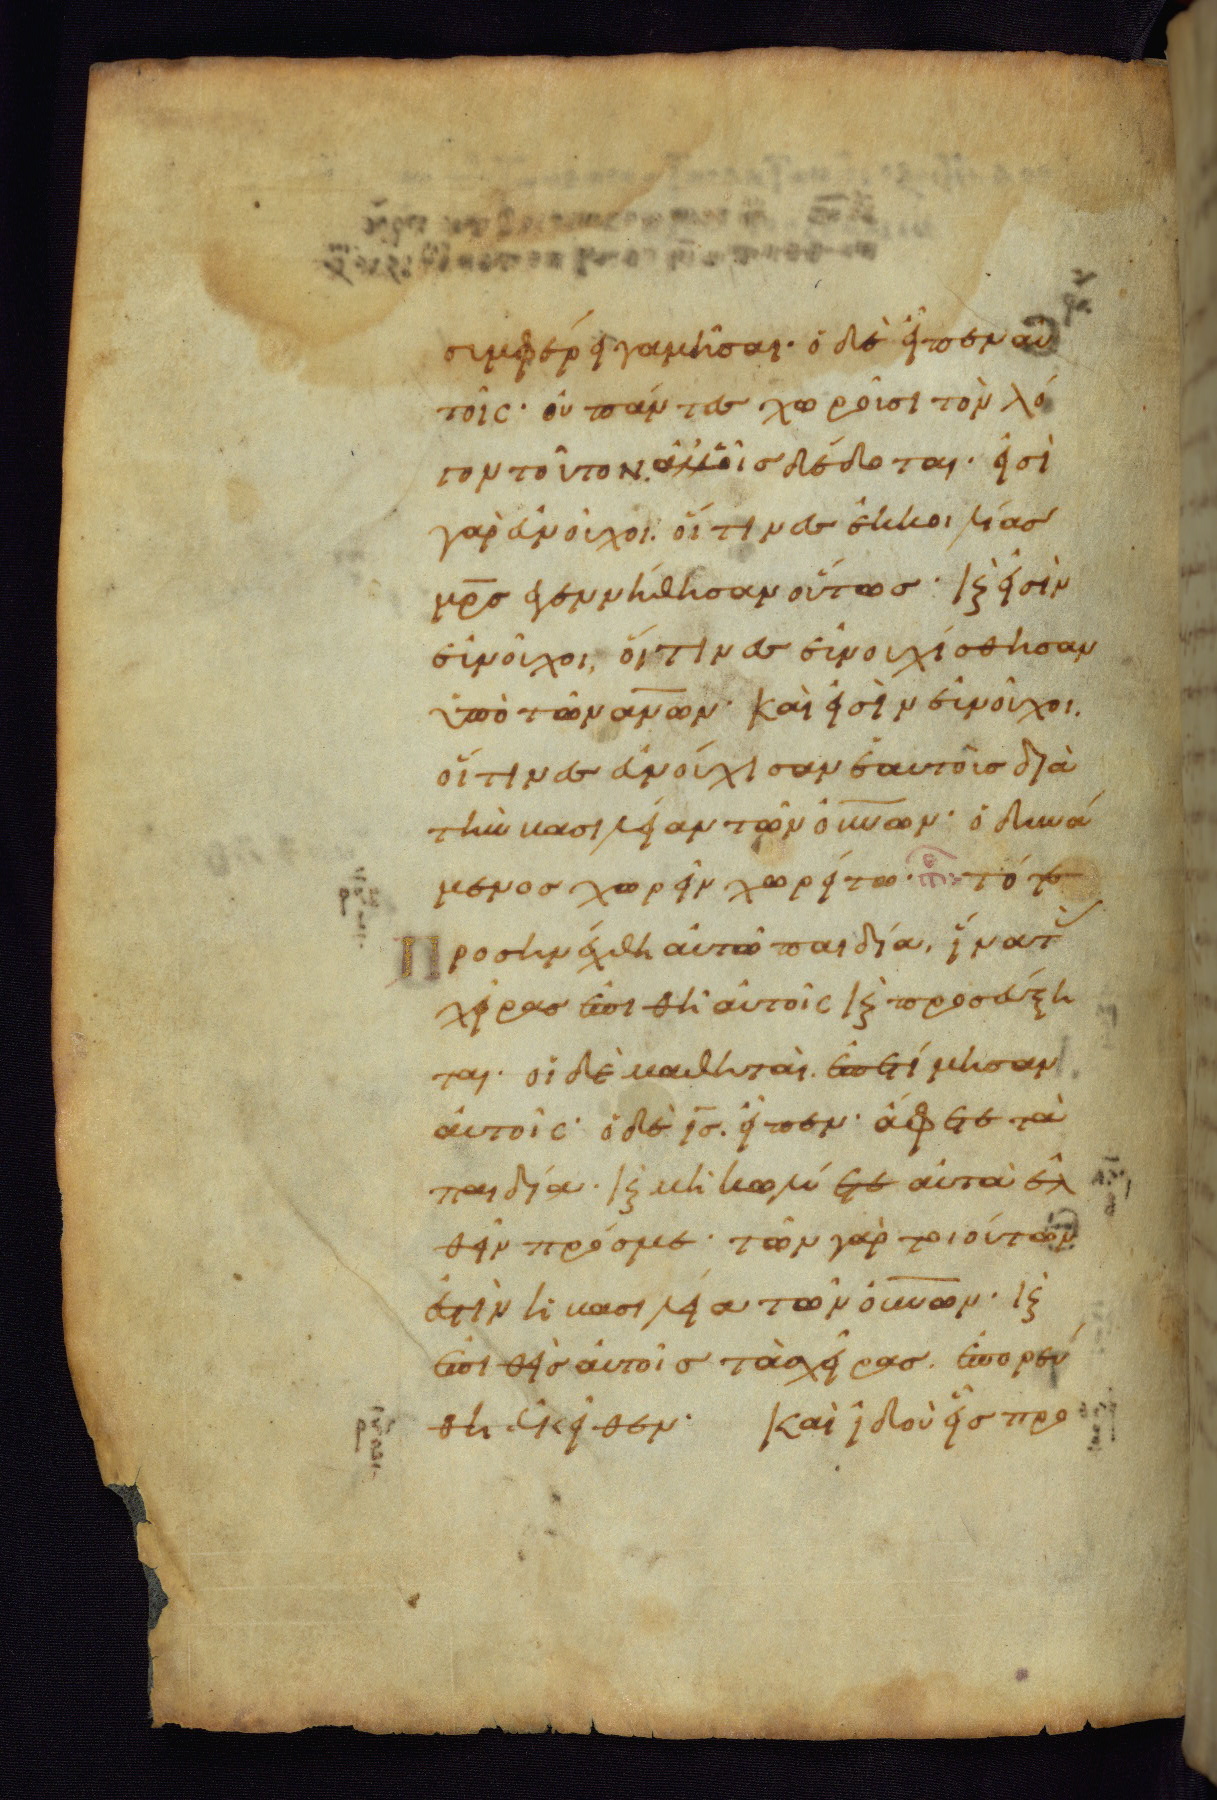 συμφέρει γαμῆσαι· ὁ δὲ εἶπεν αὐ
τοῖς· οὐ πάντες χωροῦσι τὸν λό
γον τοῦτον. ἀλλ' οἷς δέδοται· εἰσὶ
γὰρ εὐνοῦχοι. οἵτινες ἐκ κοιλίας
μρ̅ς ἐγεννήθησαν οὕτως· κ̀ εἰσὶν
εὐνοῦχοι, οἵτινες εὐνουχίσθησαν
ὑπὸ τῶν ἀν̅ων· καὶ εἰσὶν εὐνοῦχοι.
οἵτινες εὐνούχισαν ἑαυτοὺς διὰ
τὴν βασιλείαν τῶν οὐν̅ων· ὁ δυνά
μενος χωρεῖν χωρείτω· τότε
Προσηνέχθη αὐτῶ παιδία, ἵνα τ
χεῖρας ἐπιθῆ αὐτοῖς κ̀ προσεύξη
ται· οἱ δὲ μαθηταὶ. ἐπετίμησαν
αὐτοῖς· ὁ δὲ ι̅ς. εἶπεν· ἄφετε τὰ
παιδία· κ̀ μὴ κωλύετε αὐτὰ ἐλ
θεῖν πρός με· τῶν γὰρ τοιούτων
ἐστὶν ἡ βασιλεία τῶν οὐν̅ων· κ̀
ἐπιθεὶς αὐτοῖς τὰς χεῖρας. ἐπορεύ
θη ἐκεῖθεν· Καὶ ἰδοὺ εἷς προ